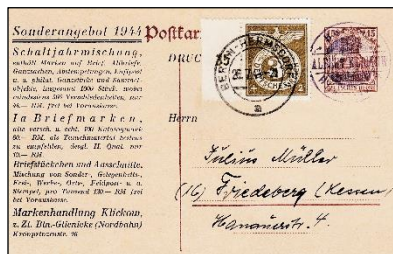 Sonderangebot 1944
Postkar
Schaltjahrmischung,
enthält Marken auf Brief, Altbriefe,
Ganzsachen, Abstempelungen, Luftpost
u. a. philat. Ganzstücke und Sammel-
objekte, insgesamt 1000 Stück, wobei
mindestens 500 Verschiedenheiten, nur
RM. frei bei Vorauskasse.
Ia Briefmarken,
alle versch. u. echt, 100 Katalogwert
60.— RM. als Tauschmaterial bestens
zu empfehlen, desgl. II. Qual. nur
RM.
Briefstückchen und Ausschnitte.
Mischung von Sonder-, Gelegenheits-,
Werbe-, Orts-, Feldpost- u. a.
Stempel, pro Tausend RM. frei
bei Vorauskasse.
Markenhandlung Klickow,
z. Zt. Bln.-Glienicke (Nordbahn)
Kronprinzenstr. 26
DRUC
BERLIN-HERMSDORF
15
Herrn
Julius Müller
(16) Friedeberg (Hessen)
Hanauerstr. 4.